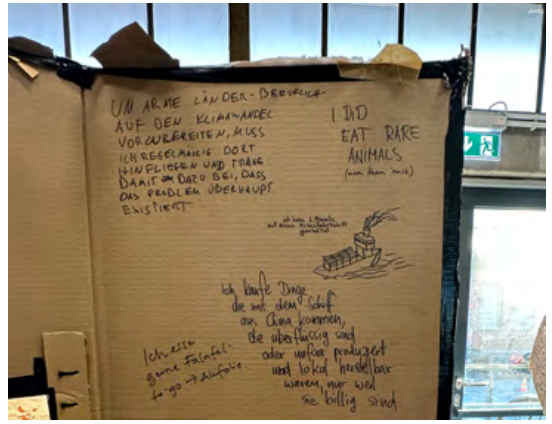 UM ARME LÄNDER - BERUFLICH -
AUF DEN KLIMAWANDEL
VORZUBEREITEN, MUSS
ICH REGELMÄSSIG DORT
HINFLIEGEN UND TRAGE
DAMIT DAZU BEI, DASS
DAS PROBLEM ÜBERHAUPT
EXISTIERT
I DID
EAT RARE
ANIMALS
(more than once)
ich habe 2 Monate
auf einem Kreuzfahrtschiff
gearbeitet
Ich kaufe Dinge
die mit dem Schiff
aus China kommen,
die überflüssig sind
oder unfair produziert
und lokal herstellbar
wären, nur weil
sie billig sind
Ich esse
gerne Falafel-
to-go → Alufolie